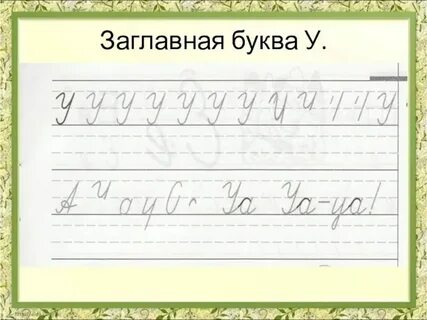 Заглавная буква У.
У У У У У У У У И У
А и а у С Уа Уа-уа!